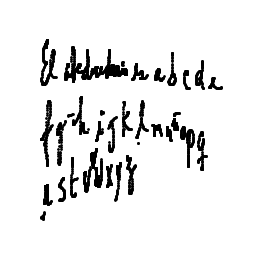 El abecedario es a b c d e
f g h i j k l m n ñ o p q
r s t v w x y z